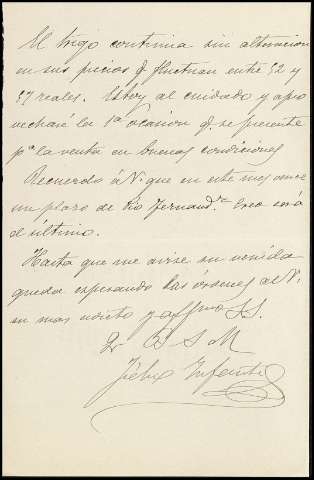 El trigo continua sin alteracion
en sus precios q. fluctuan entre 52 y
57 reales. Estoy al cuidado y apro
vecharé la 1ª ocasion q. se presente
pª la venta en buenas condiciones
Recuerdo á V. que en este mes vence
un plazo de Pio Fernandez. Creo será
el último.
Hasta que me avise su venida
queda esperando las órdenes de V.
su mas adicto y affmo S.S.
Q B S M
Felix Infante